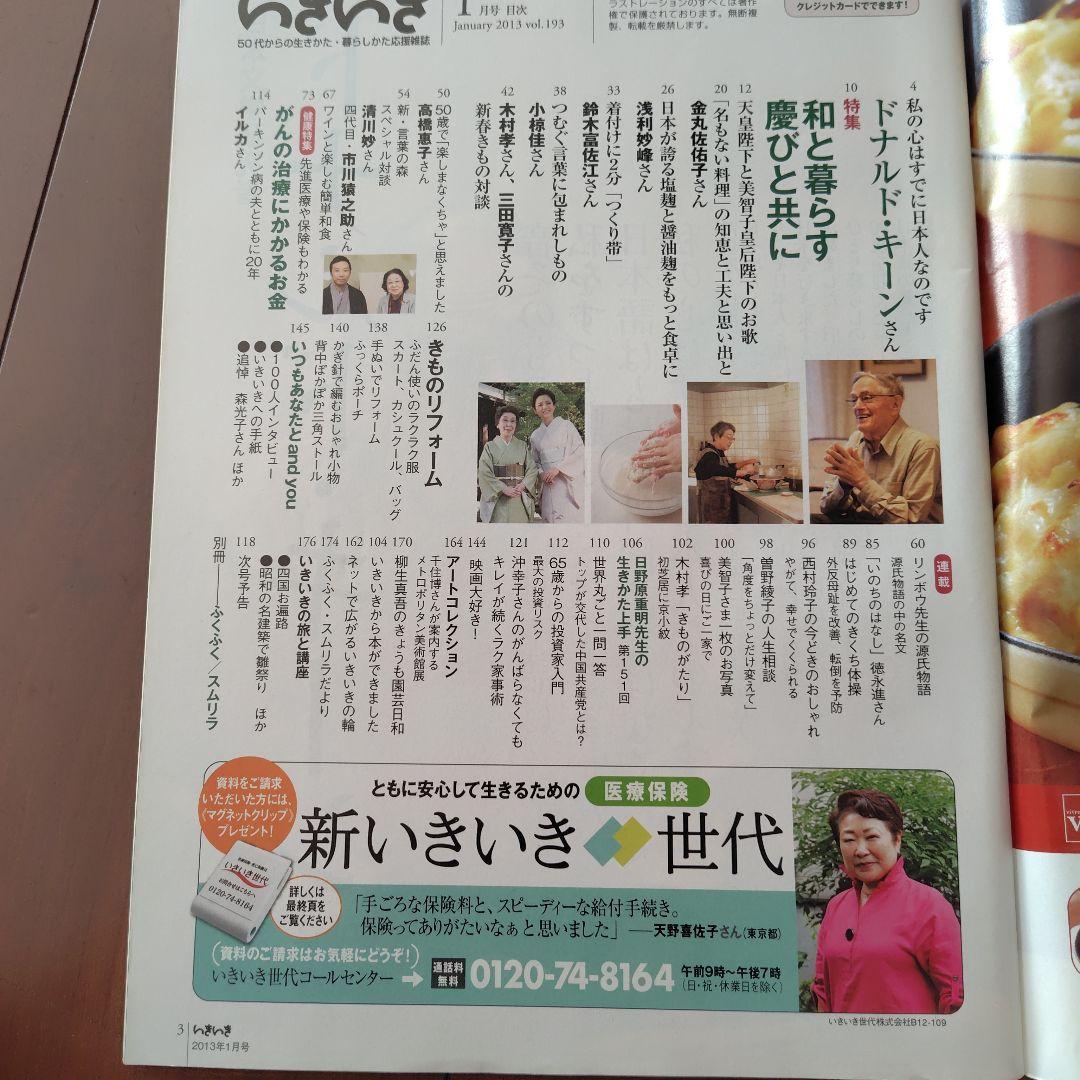 いきいき
50代からの生きかた・暮らしかた応援雑誌
1月号 目次
January 2013 vol.193
ラストレーションのすべては著作
権で保護されております。無断複
製、転載を厳禁します。
クレジットカードでできます！
4
私の心はすでに日本人なのです
ドナルド・キーンさん
10
特集
和と暮らす
慶びと共に
12
天皇陛下と美智子皇后陛下のお歌
20
「名もない料理」の知恵と工夫と思い出と
金丸佐佑子さん
26
日本が誇る塩麹と醤油麹をもっと食卓に
浅利妙峰さん
33
着付けに2分「つくり帯」
鈴木富佐江さん
38
つむぐ言葉に包まれしもの
小椋佳さん
42
木村孝さん、三田寛子さんの
新春きもの対談
50
50歳で「楽しまなくちゃ」と思えました
高橋惠子さん
54
新・言葉の森
スペシャル対談
清川妙さん
四代目・市川猿之助さん
67
ワインと楽しむ簡単和食
73
健康特集
先進医療や保険もわかる
がんの治療にかかるお金
114
パーキンソン病の夫とともに20年
イルカさん
126
きものリフォーム
ふだん使いのラクラク服
スカート、カシュクール、バッグ
138
手ぬいでリフォーム
ふっくらポーチ
140
かぎ針で編むおしゃれ小物
背中ぽかぽか三角ストール
145
いつもあなたとand you
●100人インタビュー
●いきいきへの手紙
●追悼 森光子さん ほか
連載
60
リンボウ先生の源氏物語
源氏物語の中の名文
85
「いのちのはなし」徳永進さん
89
はじめてのきくち体操
外反母趾を改善、転倒を予防
96
西村玲子の今どきのおしゃれ
やがて、幸せでくくられる
98
曽野綾子の人生相談
「角度をちょっとだけ変えて」
100
美智子さま一枚のお写真
喜びの日にご一家で
102
木村孝「きものがたり」
初芝居に京小紋
106
日野原重明先生の
生きかた上手 第151回
110
世界丸ごと一問一答
トップが交代した中国共産党とは？
112
65歳からの投資家入門
最大の投資リスク
121
沖幸子さんのがんばらなくても
キレイが続くラク家事術
144
映画大好き！
164
アートコレクション
千住博さんが案内する
メトロポリタン美術館展
170
柳生真吾のきょうも園芸日和
104
いきいきから本ができました
162
ネットで広がるいきいきの輪
174
ふくふく・スムリラだより
176
いきいきの旅と講座
●四国お遍路
●昭和の名建築で雛祭り ほか
118
次号予告
別冊――ふくふく／スムリラ
資料をご請求
いただいた方には、
《マグネットクリップ》
プレゼント！
いきいき世代
お問合せはこちらへ
0120-74-8164
詳しくは
最終頁を
ご覧ください
ともに安心して生きるための 医療保険
新いきいき世代
「手ごろな保険料と、スピーディーな給付手続き。
保険ってありがたいなぁと思いました」──天野喜佐子さん（東京都）
（資料のご請求はお気軽にどうぞ！）
いきいき世代コールセンター → 通話料無料 0120-74-8164 午前9時～午後7時
（日・祝・休業日を除く）
いきいき世代株式会社B12-109
3 いきいき
2013年1月号